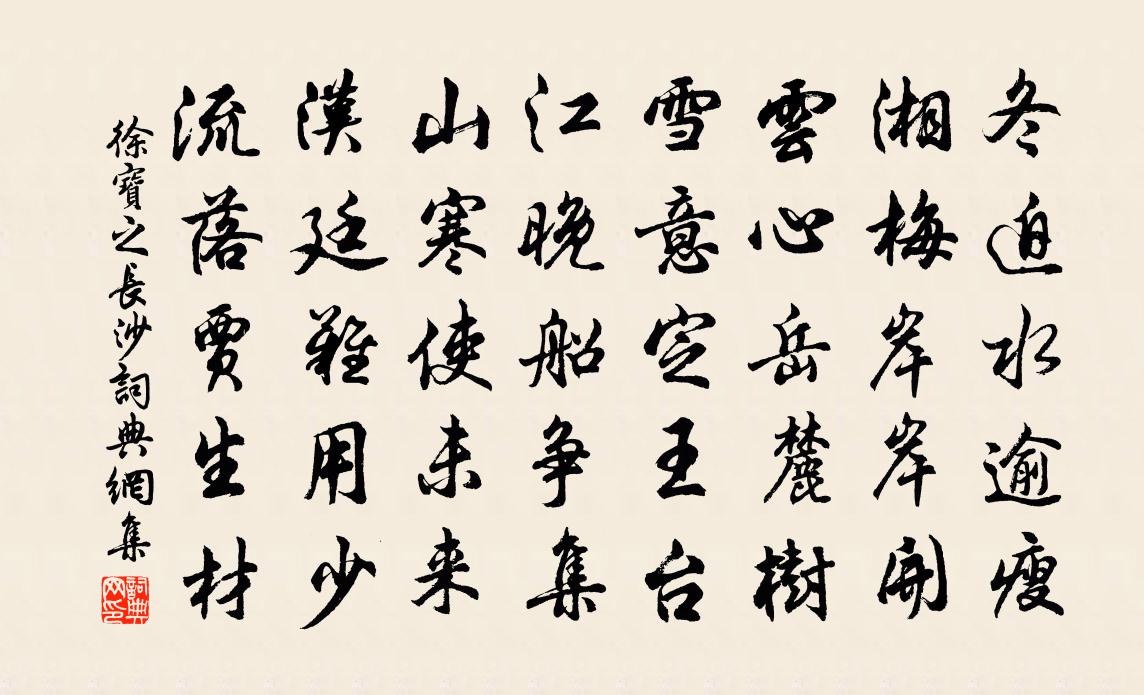 冬迫水逾瘦
湘梅岸岸開
雲心岳麓樹
雪意定王台
江晚船争集
山寒使未来
漢廷難用少
流落賈生材
徐寶之長沙詞典網集
詞典網印